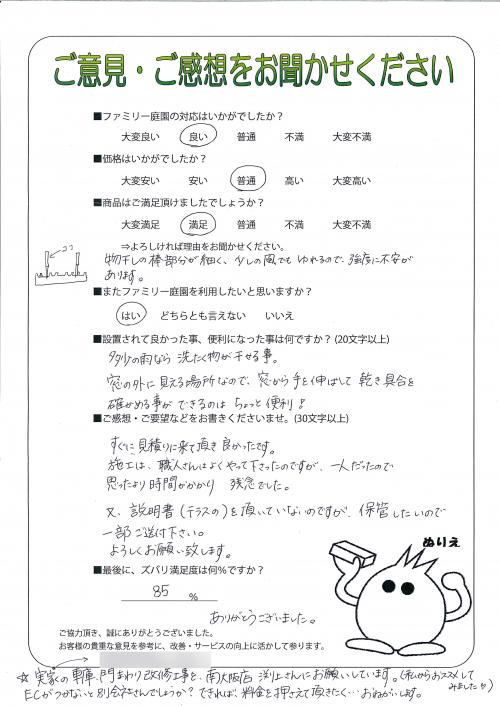 ご意見・ご感想をお聞かせください
■ファミリー庭園の対応はいかがでしたか?
大変良い 良い 普通 不満 大変不満
■価格はいかがでしたか?
大変安い 安い 普通 高い 大変高い
■商品はご満足頂けましたでしょうか?
大変満足 満足 普通 不満 大変不満
⇒よろしければ理由をお聞かせください。
ココ
物干しの棒部分が細く、少しの風でもゆれるので、強度に不安が
あります。
■またファミリー庭園を利用したいと思いますか?
はい どちらとも言えない いいえ
■設置されて良かった事、便利になった事は何ですか?(20文字以上)
多少の雨なら洗たく物が干せる事。
窓の外に見える場所なので、窓から手を伸ばして乾き具合を
確かめる事ができるのはちょっと便利!
■ご感想・ご要望などをお書きくださいませ。(30文字以上)
すぐに見積りに来て頂き良かったです。
施工は、職人さんはよくやって下さったのですが、一人だったので
思ったより時間がかかり残念でした。
又、説明書(テラスの)を頂いていないのですが、保管したいので
一部ご送付下さい。
よろしくお願い致します。
ぬりえ
■最後に、ズバリ満足度は何%ですか?
85 %
ありがとうございました。
ご協力頂き、誠にありがとうございました。
お客様の貴重な意見を参考に、改善・サービスの向上に活かして参ります。
☆実家の車庫、門まわり改修工事を、南大阪店 渕上さんにお願いしています。(私からおススメしてみましたが)
ECがつかないと別会社さんでしょうか?できれば、料金を押さえて頂きたく…おねがいします。